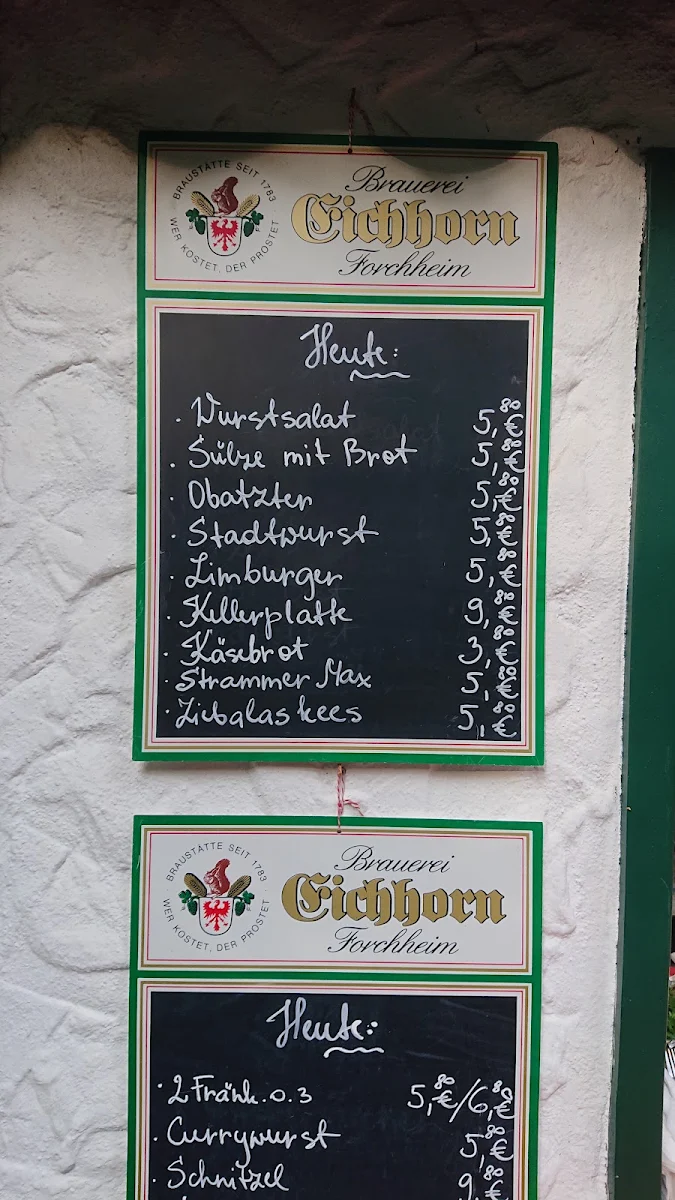 BRAUSTÄTTE SEIT 1783
WER KOSTET, DER PROSTET
Brauerei
Eichhorn
Forchheim
Heute:
· Wurstsalat 5,80€
· Sülze mit Brot 5,80€
· Obatzter 5,80€
· Stadtwurst 5,80€
· Limburger 5,80€
· Kellerplatte 9,80€
· Käsebrot 3,80€
· Strammer Max 5,80€
· Ziebalaskees 5,80€
BRAUSTÄTTE SEIT 1783
WER KOSTET, DER PROSTET
Brauerei
Eichhorn
Forchheim
Heute:
· 2 Fränk. o. 3 5,80€/6,80€
· Currywurst 5,80€
· Schnitzel 9,80